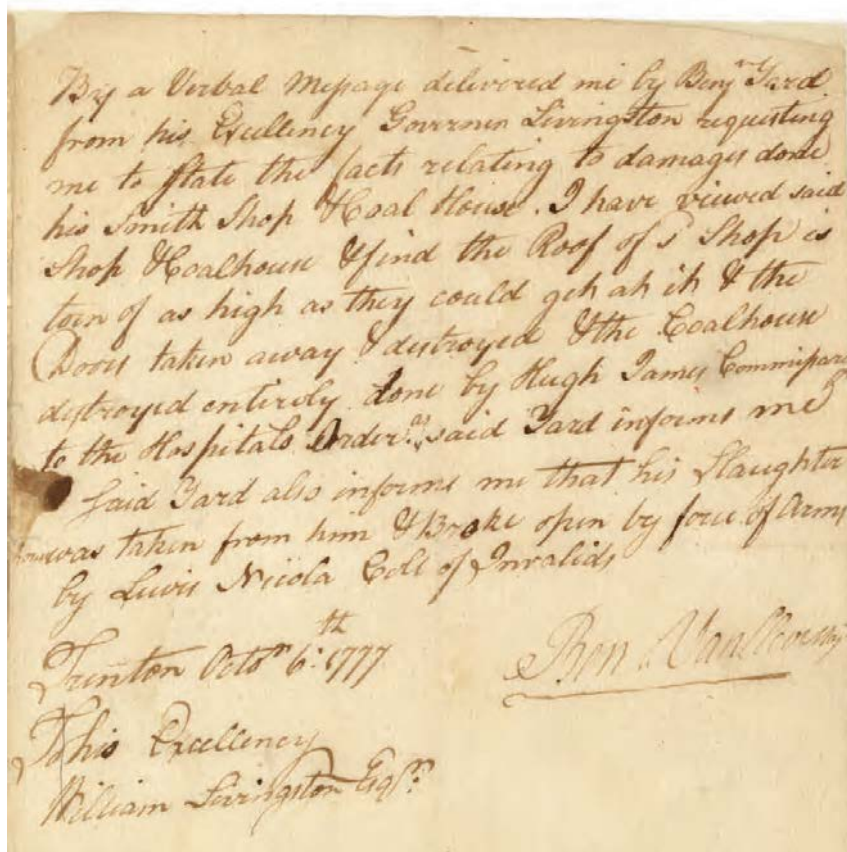 By a Verbal Message delivered me by Benjn Yard
from his Excellency Governor Livingston requesting
me to State the facts relating to damages done
his Smith Shop & Coal House. I have viewed said
Shop & Coalhouse & find the Roof of sd Shop is
torn of as high as they could geh ah ih & the
Doors taken away & destroyed & the Coalhouse
destroyed entirely done by Hugh James Commissary
to the Hospitals Order as said Yard informs me
Said Yard also informs me that his Slaughter
house was taken from him & Broke open by force of Arms
by Lewis Nicola Coll of Invalids
Trenton Octor 6th 1777
Ben Van Cleve
To his Excellency
William Livingston Esqr.